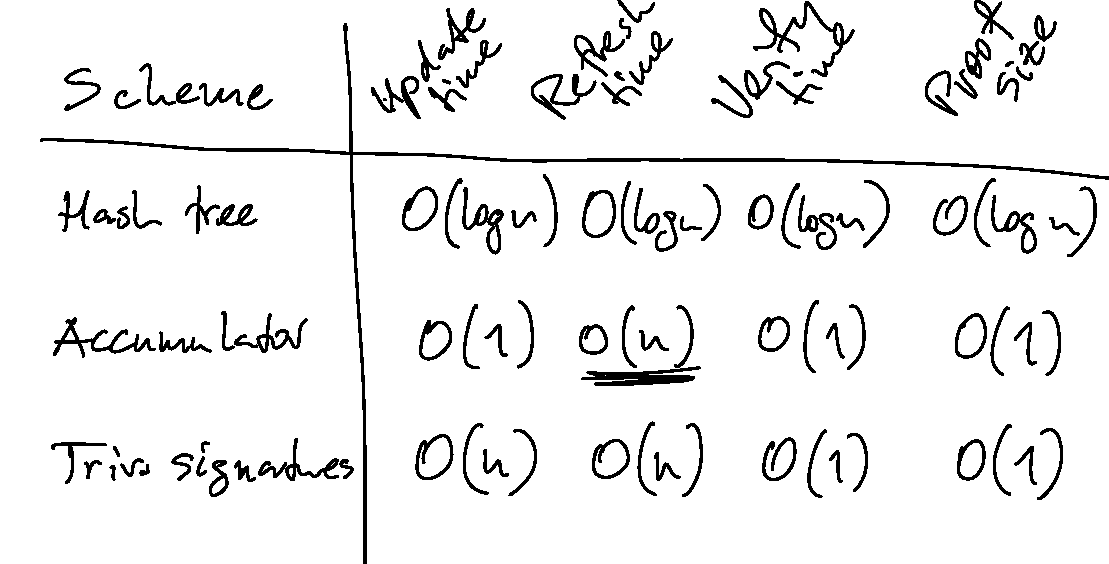 Scheme Update time Refresh time Verify time Proof size
Hash tree O(log n) O(log n) O(log n) O(log n)
Accumulator O(1) O(n) O(1) O(1)
Triv. signatures O(n) O(n) O(1) O(1)